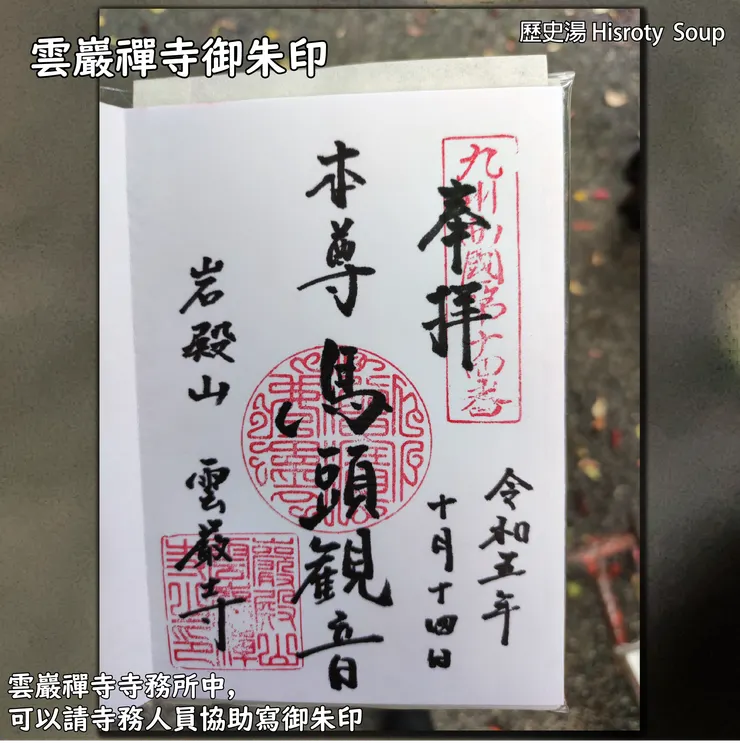 雲巖禪寺御朱印
歷史湯 Hisroty Soup
奉拝
本尊
馬頭観音
岩殿山
雲巌寺
令和五年
十月十四日
雲巖禪寺寺務所中,
可以請寺務人員協助寫御朱印